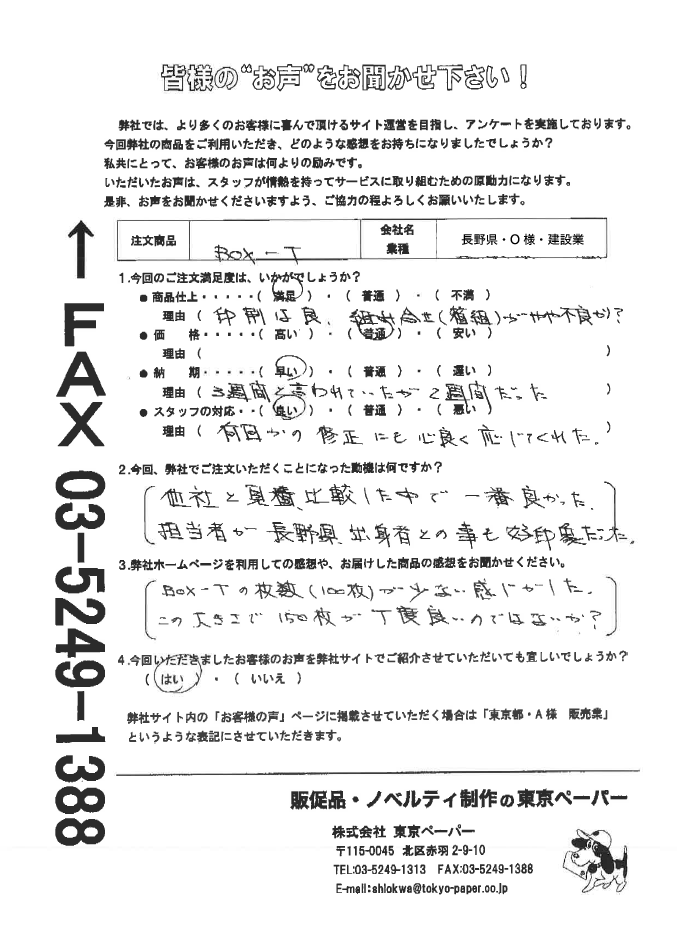 皆様の“お声”をお聞かせ下さい！
弊社では、より多くのお客様に喜んで頂けるサイト運営を目指し、アンケートを実施しております。
今回弊社の商品をご利用いただき、どのような感想をお持ちになりましたでしょうか？
私共にとって、お客様のお声は何よりの励みです。
いただいたお声は、スタッフが情熱を持ってサービスに取り組むための原動力になります。
是非、お声をお聞かせくださいますよう、ご協力の程よろしくお願いいたします。
注文商品 BOX-T 会社名 業種 長野県・O様・建設業
1.今回のご注文満足度は、いかがでしょうか？
●商品仕上・・・・・( 満足 )・( 普通 )・( 不満 )
理由( 印刷は良、組み合せ(着組)がやや不良か?
●価 格・・・・・( 高い )・( 普通 )・( 安い )
理由( )
●納 期・・・・・( 早い )・( 普通 )・( 遅い )
理由( 3週間と言われていたが2週間だった )
●スタッフの対応・・( 良い )・( 普通 )・( 悪い )
理由( 何回かの修正にも心良く応じてくれた。)
2.今回、弊社でご注文いただくことになった動機は何ですか？
他社と見積、比較した中で一番良かった、
担当者が長野県出身者との事も好印象だった。
3.弊社ホームページを利用しての感想や、お届けした商品の感想をお聞かせください。
BOX-Tの枚数(100枚)が少ない感じがした。
この大きさで150枚が丁度良いのではないか?
4.今回いただきましたお客様のお声を弊社サイトでご紹介させていただいても宜しいでしょうか？
( はい )・( いいえ )
弊社サイト内の「お客様の声」ページに掲載させていただく場合は「東京都・A様 販売業」
というような表記にさせていただきます。
販促品・ノベルティ制作の東京ペーパー
株式会社 東京ペーパー
〒115-0045 北区赤羽2-9-10
TEL:03-5249-1313 FAX:03-5249-1388
E-mail:shiokwa@tokyo-paper.co.jp
↑FAX 03-5249-1388